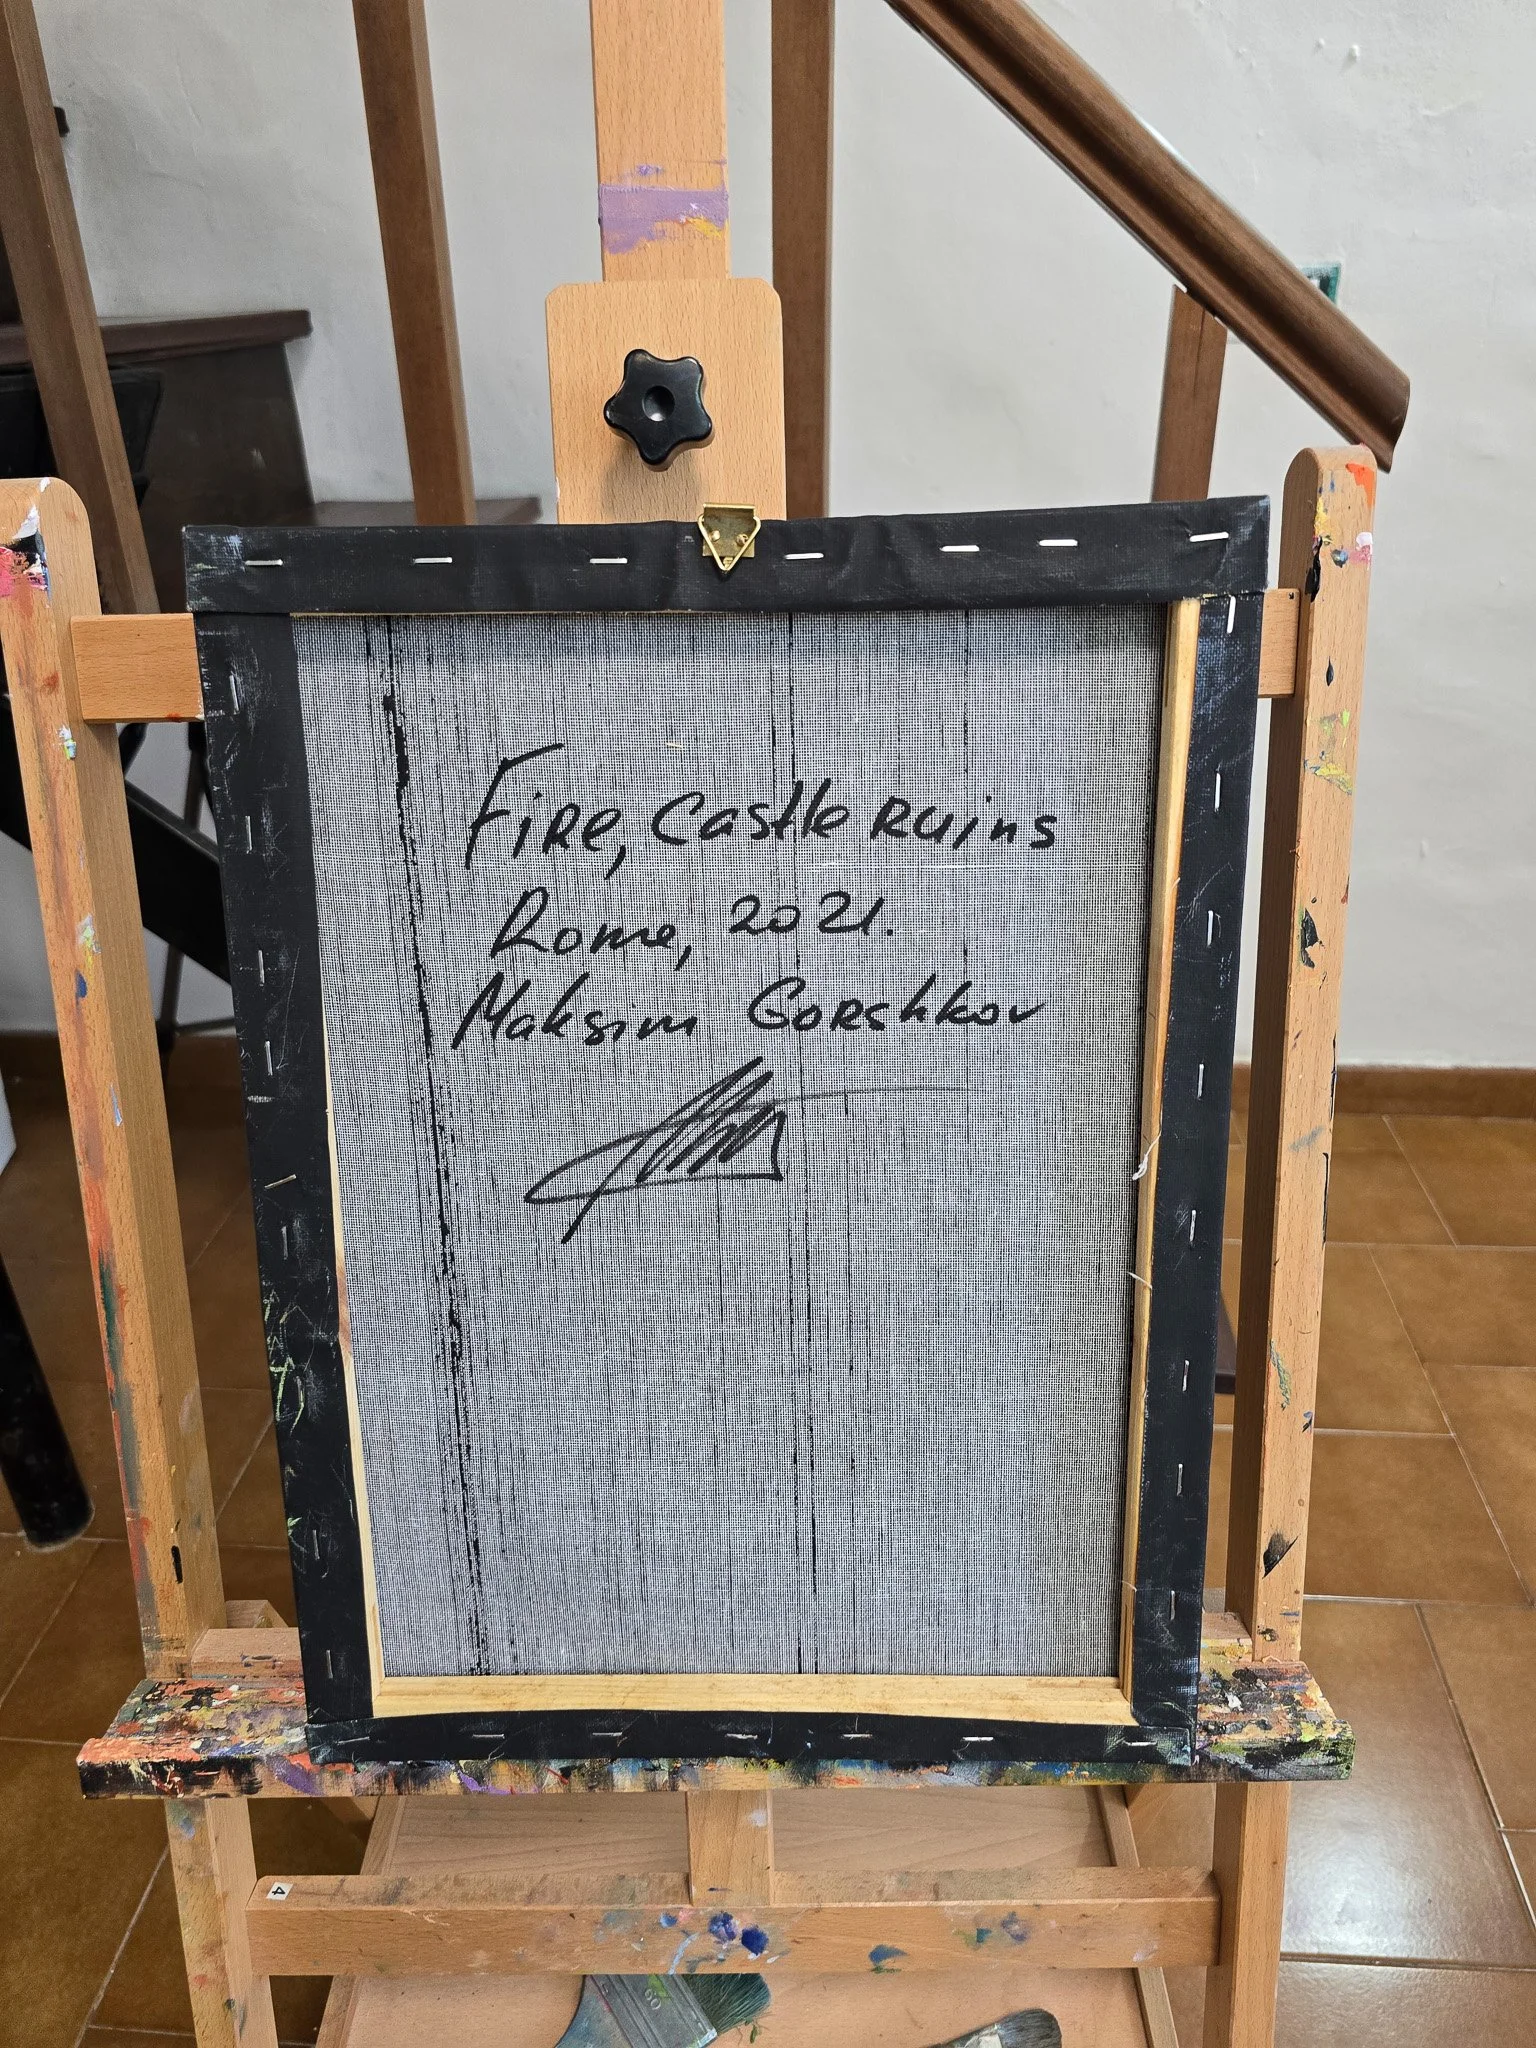 Fire, Castle Ruins
Rome, 2021.
Maksim Gorshkov
4
60